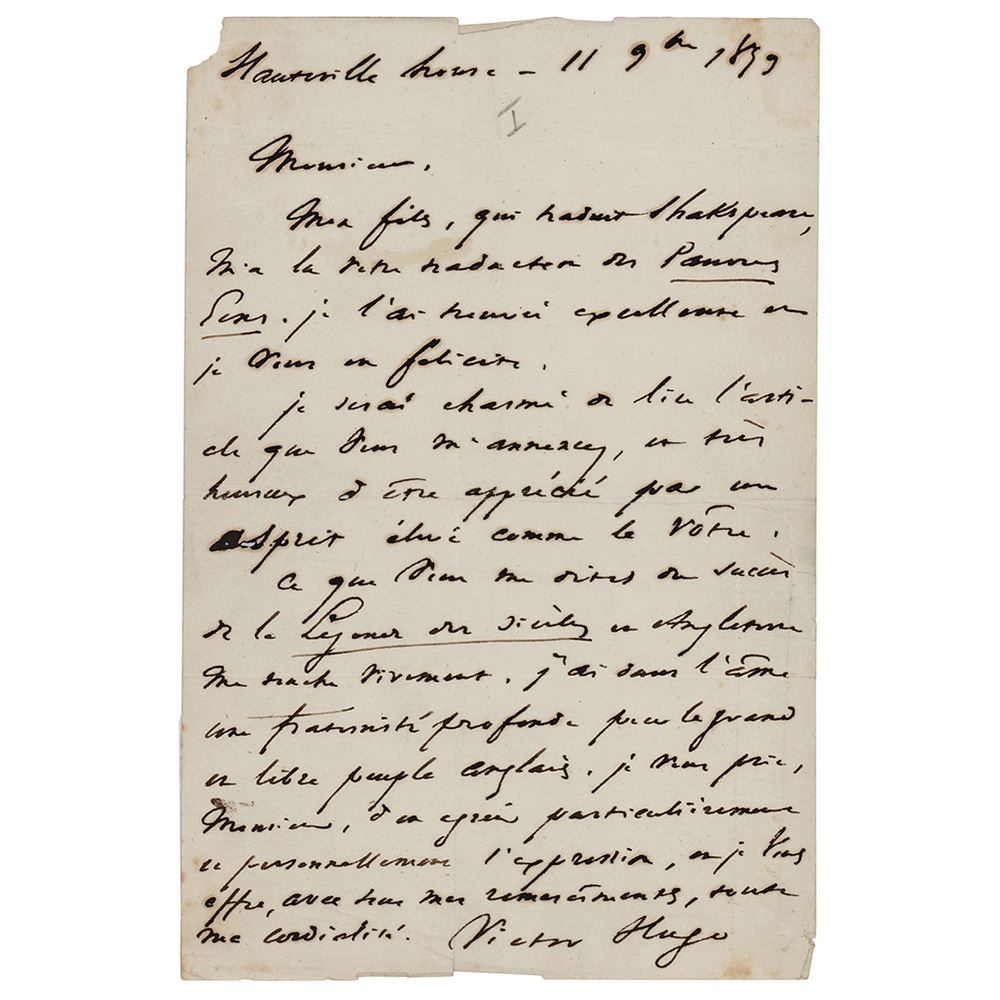 Hauteville house – 11 9bre 1859
I
Monsieur,
Mon fils, qui traduit Shakspeare,
m'a lu votre traduction des Pauvres
Gens. je l'ai trouvée excellente et
je vous en félicite.
je serai charmé de lire l'arti-
cle que vous m'annoncez, et très
heureux d'être apprécié par un
esprit élevé comme le vôtre.
Ce que vous me dites du succès
de la Légende des siècles en Angleterre
me touche vivement. j'ai dans l'âme
une fraternité profonde pour le grand
et libre peuple anglais. je vous prie,
Monsieur, d'en agréer particulièrement
et personnellement l'expression, et je vous
offre, avec tous mes remercîments, toute
ma cordialité. Victor Hugo